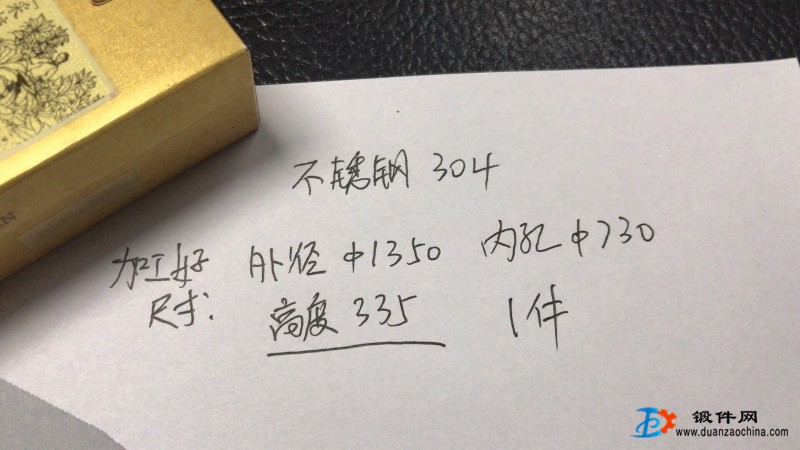 不锈钢 304
加工好 外径 φ1350 内孔 φ730
尺寸: 高度 335 1件
锻件网
www.duanzaochina.com